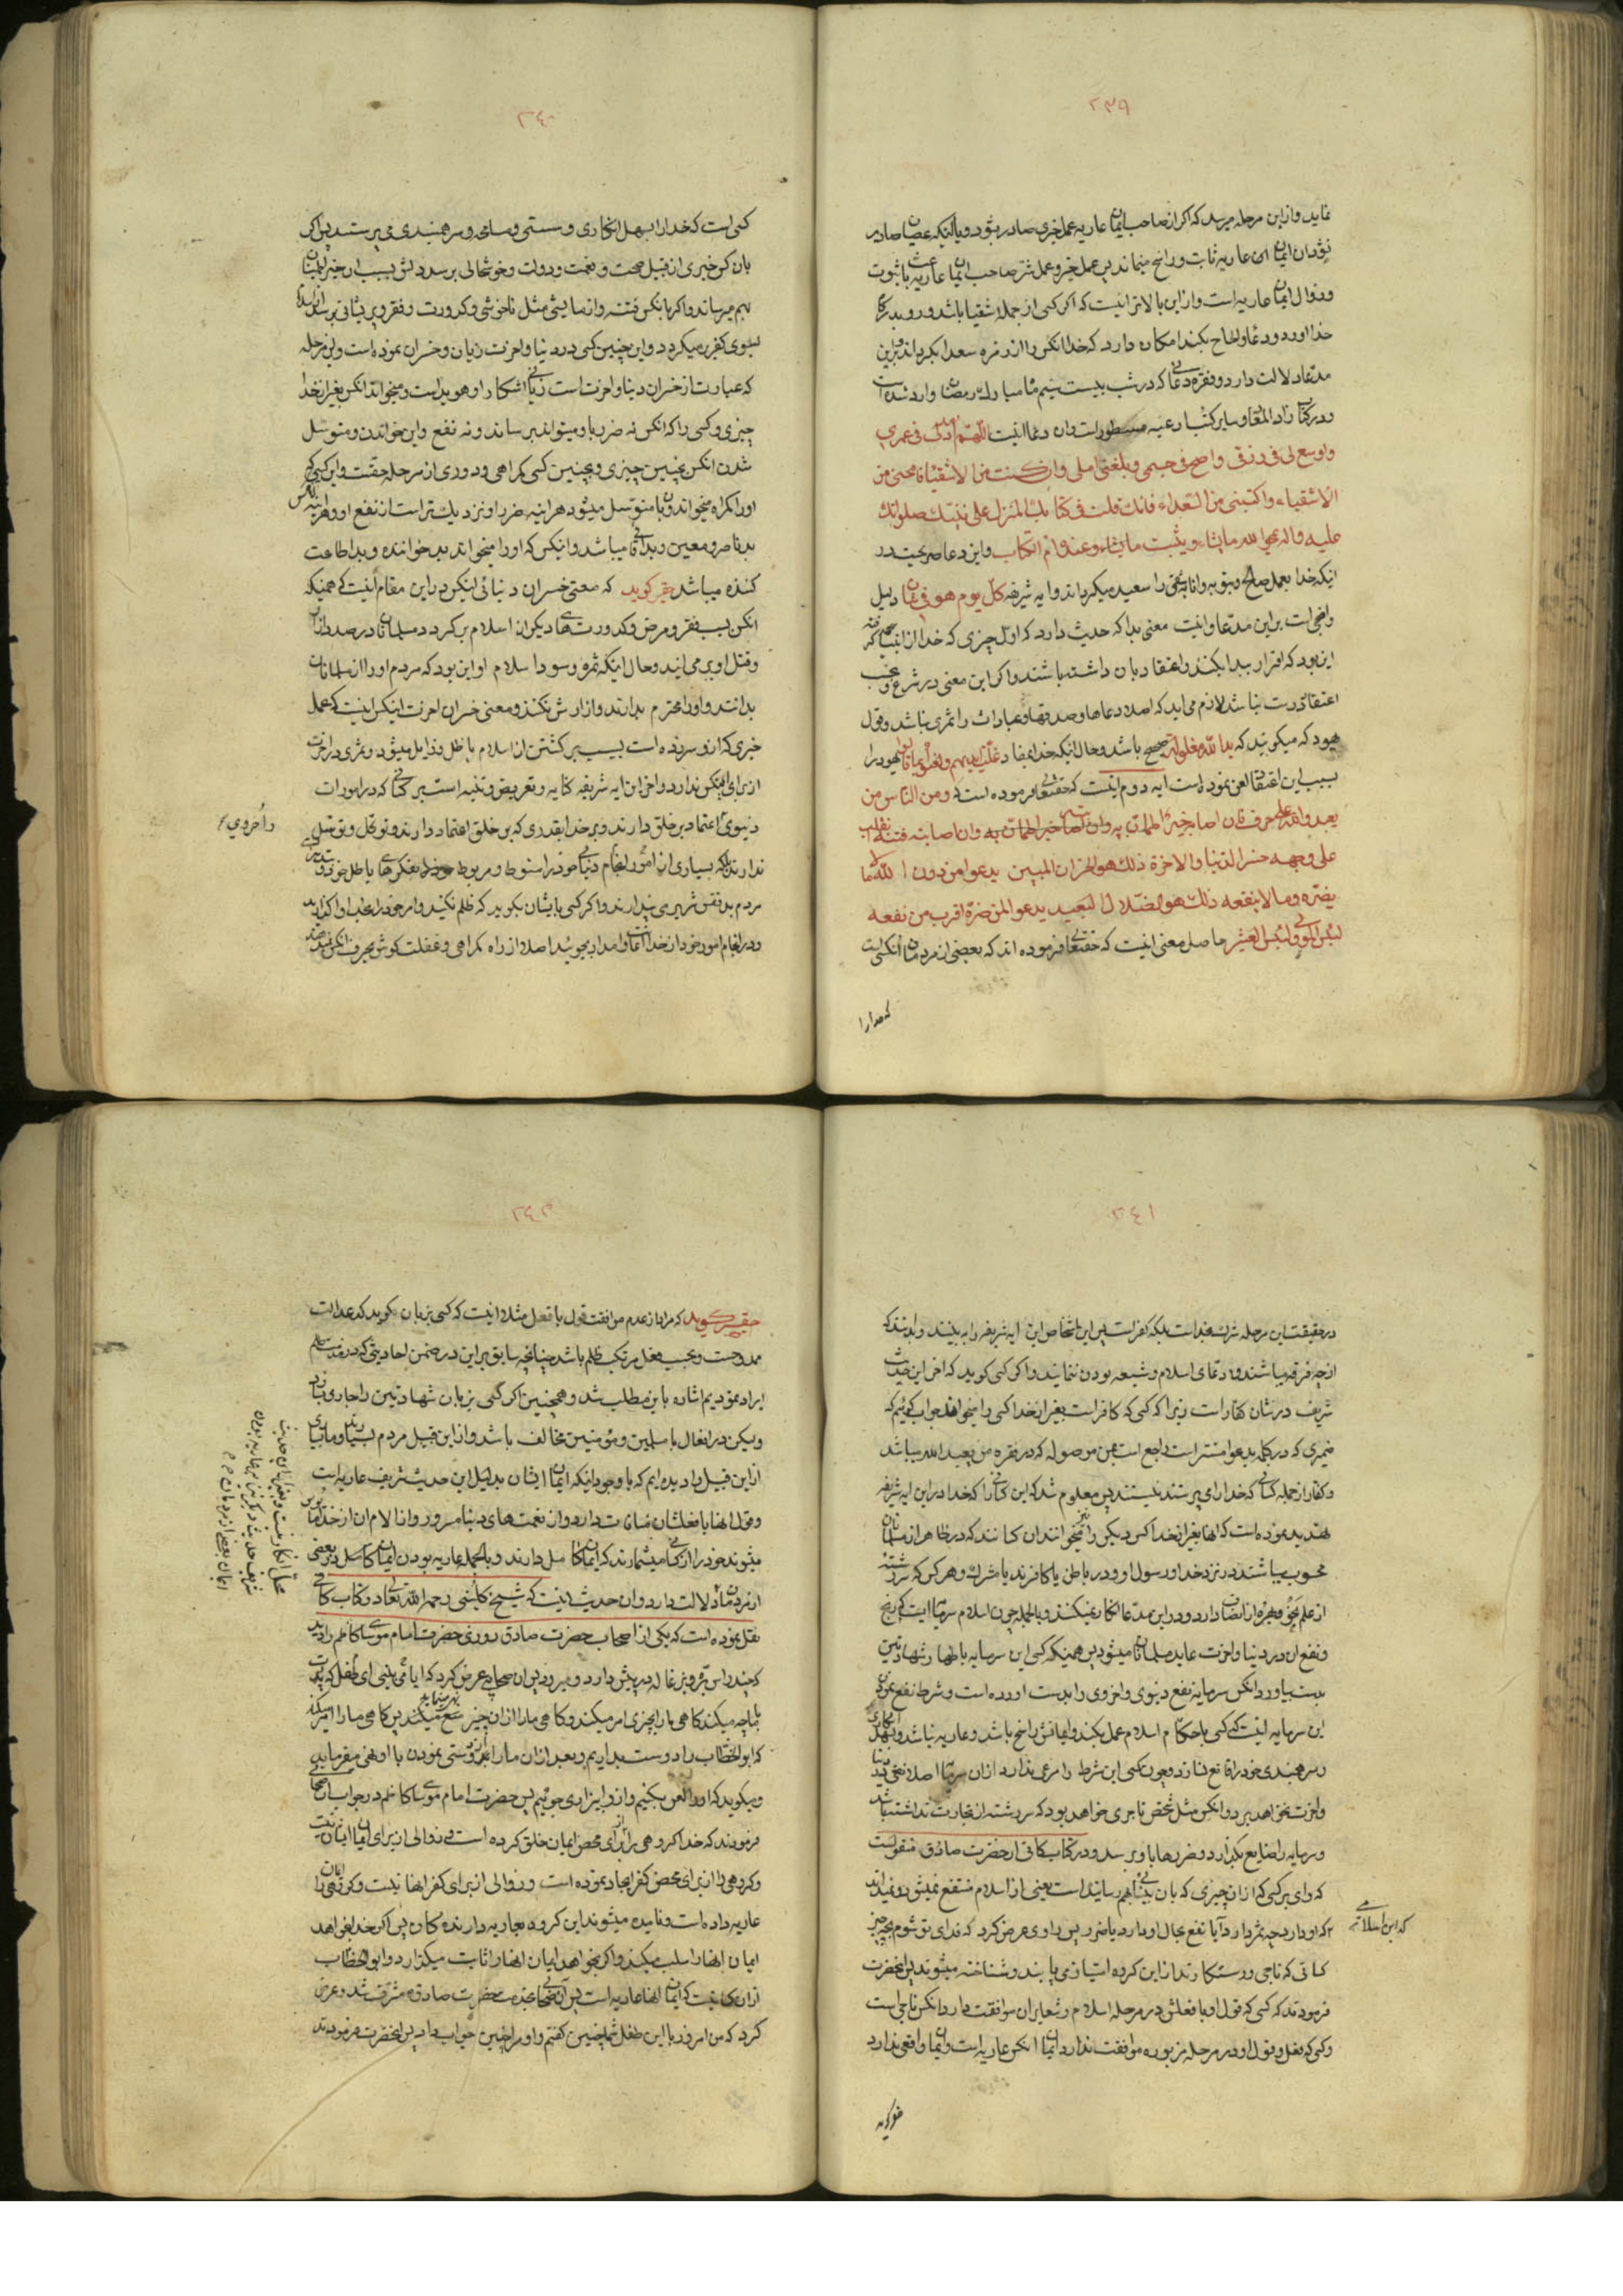 ۲۳۹
نماید و از این مرحله میرسد که اگر از صاحب ایمان عاریه عمل خیری صادر بشود و یا آنکه عصیان صادر
نشود آن ایمان عاریه ثابت و راسخ میماند پس عمل خیر و عمل شر صاحب ایمان عاریه باعث ثبوت
و زوال ایمان عاریه است و از این بالاتر اینست که اگر کسی از جمله اشقیا باشد و رو بدرگاه
خدا اورد و دعا و الحاح بکند امکان دارد که خدا انکس را از زمره سعدا بگرداند و براین
مدعا دلالت دارد و فقره دعائی که در شب بیست سیم ماه مبارک رمضان وارد شده است
و در کتاب زاد المعاد و سایر کتب ادعیه مسطور است و ان دعا اینست اللهم امدد لی فی عمری
و اوسع لی فی رزقی و اصح لی جسمی و بلغنی املی و ان کنت من الاشقیاء فامحنی من
الاشقیاء و اکتبنی من السعداء فانک قلت فی کتابک المنزل علی نبیک صلواتک
علیه واله یمحو الله ما یشاء و یثبت ما یشاء و عنده ام الکتاب و این دعا صریحست در
اینکه خدا بعمل صالح و بتوبه و انابه شقی را سعید میگرداند و ایه شریفه کل یوم هو فی شان دلیل
واضحی است براین مدعا و اینست معنی بدا که حدیث دارد که اول چیزی که خدا از انبیا گرفته
این بود که اقرار ببدا بکنند و اعتقاد بان داشته باشند و اگر این معنی در شرع و
اعتقاد درست نباشد لازم می اید که اصلا دعاها و صدقها و عبادات را ثمری نباشد و قول
یهود که میگویند که ید الله مغلوله صحیح باشد و حال انکه خدا بمفاد غلت ایدیهم و لعنوا بما قالوا یهود را
بسبب این اعتقاد لعن نموده است ایه دوم اینست که حقتعالی فرموده است و من الناس من
یعبد الله علی حرف فان اصابه خیر اطمان به وان اصابته فتنه انقلب
علی وجهه خسر الدنیا و الاخرة ذلک هو الخسران المبین یدعوا من دون الله ما لا
یضره و ما لا ینفعه ذلک هو الضلال البعید یدعو المن ضره اقرب من نفعه
لبئس المولی و لبئس العشیر حاصل معنی اینست که حقتعالی فرموده اند که بعضی از مردمان انکسی است
که خدا را
۲۴۰
کسی است که خدا را بسهل انکاری و سستی و مسامحه و سرهمبندی می پرستد پس اگر
بان کس خیری از قبیل صحت و نعمت و دولت و خوشحالی برسد دلش بسبب ان خیر اطمینان
بهم میرساند و اگر بانکس فتنه و ازمایشی مثل ناخوشی و کدورت و فقر و پریشانی برسد
بسوی کفر برمیگردد و این چنین کسی در دنیا و اخرت زیان و خسران نموده است و این مرحله
که عبارت از خسران دنیا و اخرت است زیانی اشکار و هویداست و میخواند انکس بغیر از خدا
چیزی و کسی را که انکس نه ضرر باو میتواند برساند و نه نفع و این خواندن و متوسل
شدن انکس بچنین چیزی و بچنین کسی گمراهی و دوری از مرحله حقست و این کسی که
او را گمراه میخواند و باو متوسل میشود هراینه ضرر او نزدیک تر است از نفع او و هراینه
بد ناصر و معین و بد میباشد و انکس که او را میخواند بد خواننده و بد اطاعت
کننده میباشد حقیر گوید که معنی خسران دنیائی انکس در این مقام اینست که همینکه
انکس بسبب فقر و مرض و کدورتهای دیگر از اسلام برگردد مسلمانان در صدد ازار
و قتل او برمی ایند و حال اینکه ثمره و سود اسلام او این بود که مردم او را از مسلمانان
بدانند و او را محترم بدارند و ازارش نکنند و معنی خسران اخرت انکس اینست که عمل
خیری که از او سرزده است بسبب برگشتن از اسلام باطل و زایل میشود و ثمری در اخرت
از برای انکس ندارد و اخر این ایه شریفه کنایه و تعریض و تنبیه است بر کسانی که در امورات
دنیوی اعتماد بر خلق دارند و بر خدا بقدری که بر خلق اعتماد دارند و توکل و توسل
ندارند بلکه بسیاری از امور انجام دنیائی خود را منوط و مربوط بفکرهای باطل خود و
مردم بد نفس شریر می پندارند و اگر کسی بایشان بگوید که ظلم نکنید و امر خود را بخدا واگذارید
و در انجام امور خود از خدا اعانت و امداد بجوئید اصلا از راه گمراهی و غفلت گوش بحرف انکس نمیدهند
و اخروی
۲۴۱
در حقیقت این مرحله شرک بخداست بلکه کفر است پس این اشخاص این ایه شریفه را به بینند و بدانند که
از چه فرقه میباشند و ادعای اسلام و شیعه بودن ننمایند و اگر کسی گوید که اخر این حدیث
شریف در شان کفار است زیرا که کسی که کافر است بغیر از خدا کسی را میخواند جواب گوئیم که
ضمیری که در کلمه یدعوا مستتر است راجع است بمن موصوله که در فقره من یعبد الله میباشد
و کفار از جمله کسانی که خدا را می پرستند نیستند پس معلوم شد که این کسانی را که خدا در این ایه شریفه
تهدید نموده است که انها بغیر از خدا کس دیگر را میخوانند ان کسانند که در ظاهر از مسلمانان
محسوب میباشند و در نزد خدا و رسول او در باطن یا کافرند یا مشرک و هر کس که سررشته
از علم نحو و بهره از انصاف دارد در این مدعا انکار نمیکند و بالجمله چون اسلام سرمایه ایست که ربح
و نفع ان در دنیا و اخرت عاید مسلمانان میشود پس همینکه کسی این سرمایه باظهار شهادتین
بدست بیاورد انکس سرمایه نفع دنیوی و اخروی را بدست اورده است و شرط نفع نمودن
این سرمایه اینست که کسی باحکام اسلام عمل بکند و ایمانش راسخ باشد و عاریه نباشد و بسهل انکاری
و سرهمبندی خود را قانع نسازد و چون کسی این شرط را مرعی ندارد از ان سرمایه اصلا نفعی در دنیا
و اخرت نخواهد برد و انکس مثل شخص تاجری خواهد بود که سررشته از تجارت نداشته باشد
و سرمایه را ضایع بگذارد و ضررها باو برسد و در کتاب کافی از حضرت صادق منقولست
که وای بر کسی که از ان چیزی که بان بینائی بهم رسانیده است یعنی از اسلام منتفع نمیشود و نمیداند
که او دارد چه ثمر دارد آیا نفع بحال او دارد یا ضرر پس راوی عرض کرد که فدای تو شوم بچه چیز
کسانی که ناجی و رستگارند از این گروه امتیاز می یابند و شناخته میشوند پس انحضرت
فرمودند که کسی که قول او با فعلش در مرحله اسلام و شعایر ان موافقت دارد انکس ناجی است
و کسی که فعل و قول او در مرحله مزبوره موافقت ندارد ایمان انکس عاریه است و ایمان واقعی ندارد
که این اسلامی
۲۴۲
حقیر گوید که مراد از عدم موافقت قول با فعل مثلا اینست که کسی بزبان بگوید که عدالت
ممدوحست و بحسب فعل مرتکب ظلم باشد چنانچه سابق براین در ضمن احادیثی که در مفسده ظلم
ایراد نمودیم اشاره باین مطلب شد و همچنین اگر کسی بزبان شهادتین را جاری سازد
ولیکن در افعال با مسلمین و مؤمنین مخالف باشد و از این قبیل مردم بسیارند و ما بسیاری
از این قبیل را دیده ایم که با وجود اینکه ایمان ایشان بدلیل این حدیث شریف عاریه است
و قول انها با فعلشان منافات دارد و از نعمت های دنیا مسرور و از الام ان از خدا مایوس
میشوند خود را از کسانی میشمارند که ایمان کامل دارند و بالجمله عاریه بودن ایمان کامل در بعضی
از مردمان دلالت دارد و ان حدیث اینست که شیخ کلینی رحمه الله تعالی در کتاب کافی
نقل نموده است که یکی از اصحاب حضرت صادق روزی حضرت امام موسی کاظم را دید
که چند راس بره و بزغاله در پیش دارد و میرود پس ان صحابی عرض کرد که ایا نمی بینی ای طفل که پدرت
با ما چه میکند گاهی ما را بچیزی امر میکند و گاهی ما را از ان چیز منع میکند پس گاهی ما را امر میکند
که ابو الخطاب را دوست بداریم و بعد از ان ما را از دوستی نمودن با او نهی میفرماید
و میگوید که او را لعن بکنیم و از او بیزاری جوئیم پس حضرت امام موسی کاظم در جواب ان صحابی
فرمودند که خدا گروهی را از برای محض ایمان خلق کرده است و زوالی از برای ایمان ایشان نیست
و گروهی را از برای محض کفر ایجاد نموده است و زوالی از برای کفر انها نیست و گروهی را ایمان
عاریه داده است و نامیده میشوند این گروه بعاریه دارنده گان پس اگر خدا بخواهد
ایمان انها را سلب میکند و اگر بخواهد ایمان انها را ثابت میگذارد و ابو الخطاب
از ان کسانیست که ایمان انها عاریه است پس آن صحابی بخدمت حضرت صادق مشرف شد و عرض
کرد که من امروز با این طفل شما چنین گفتم و او مرا چنین جواب داد پس انحضرت فرمودند